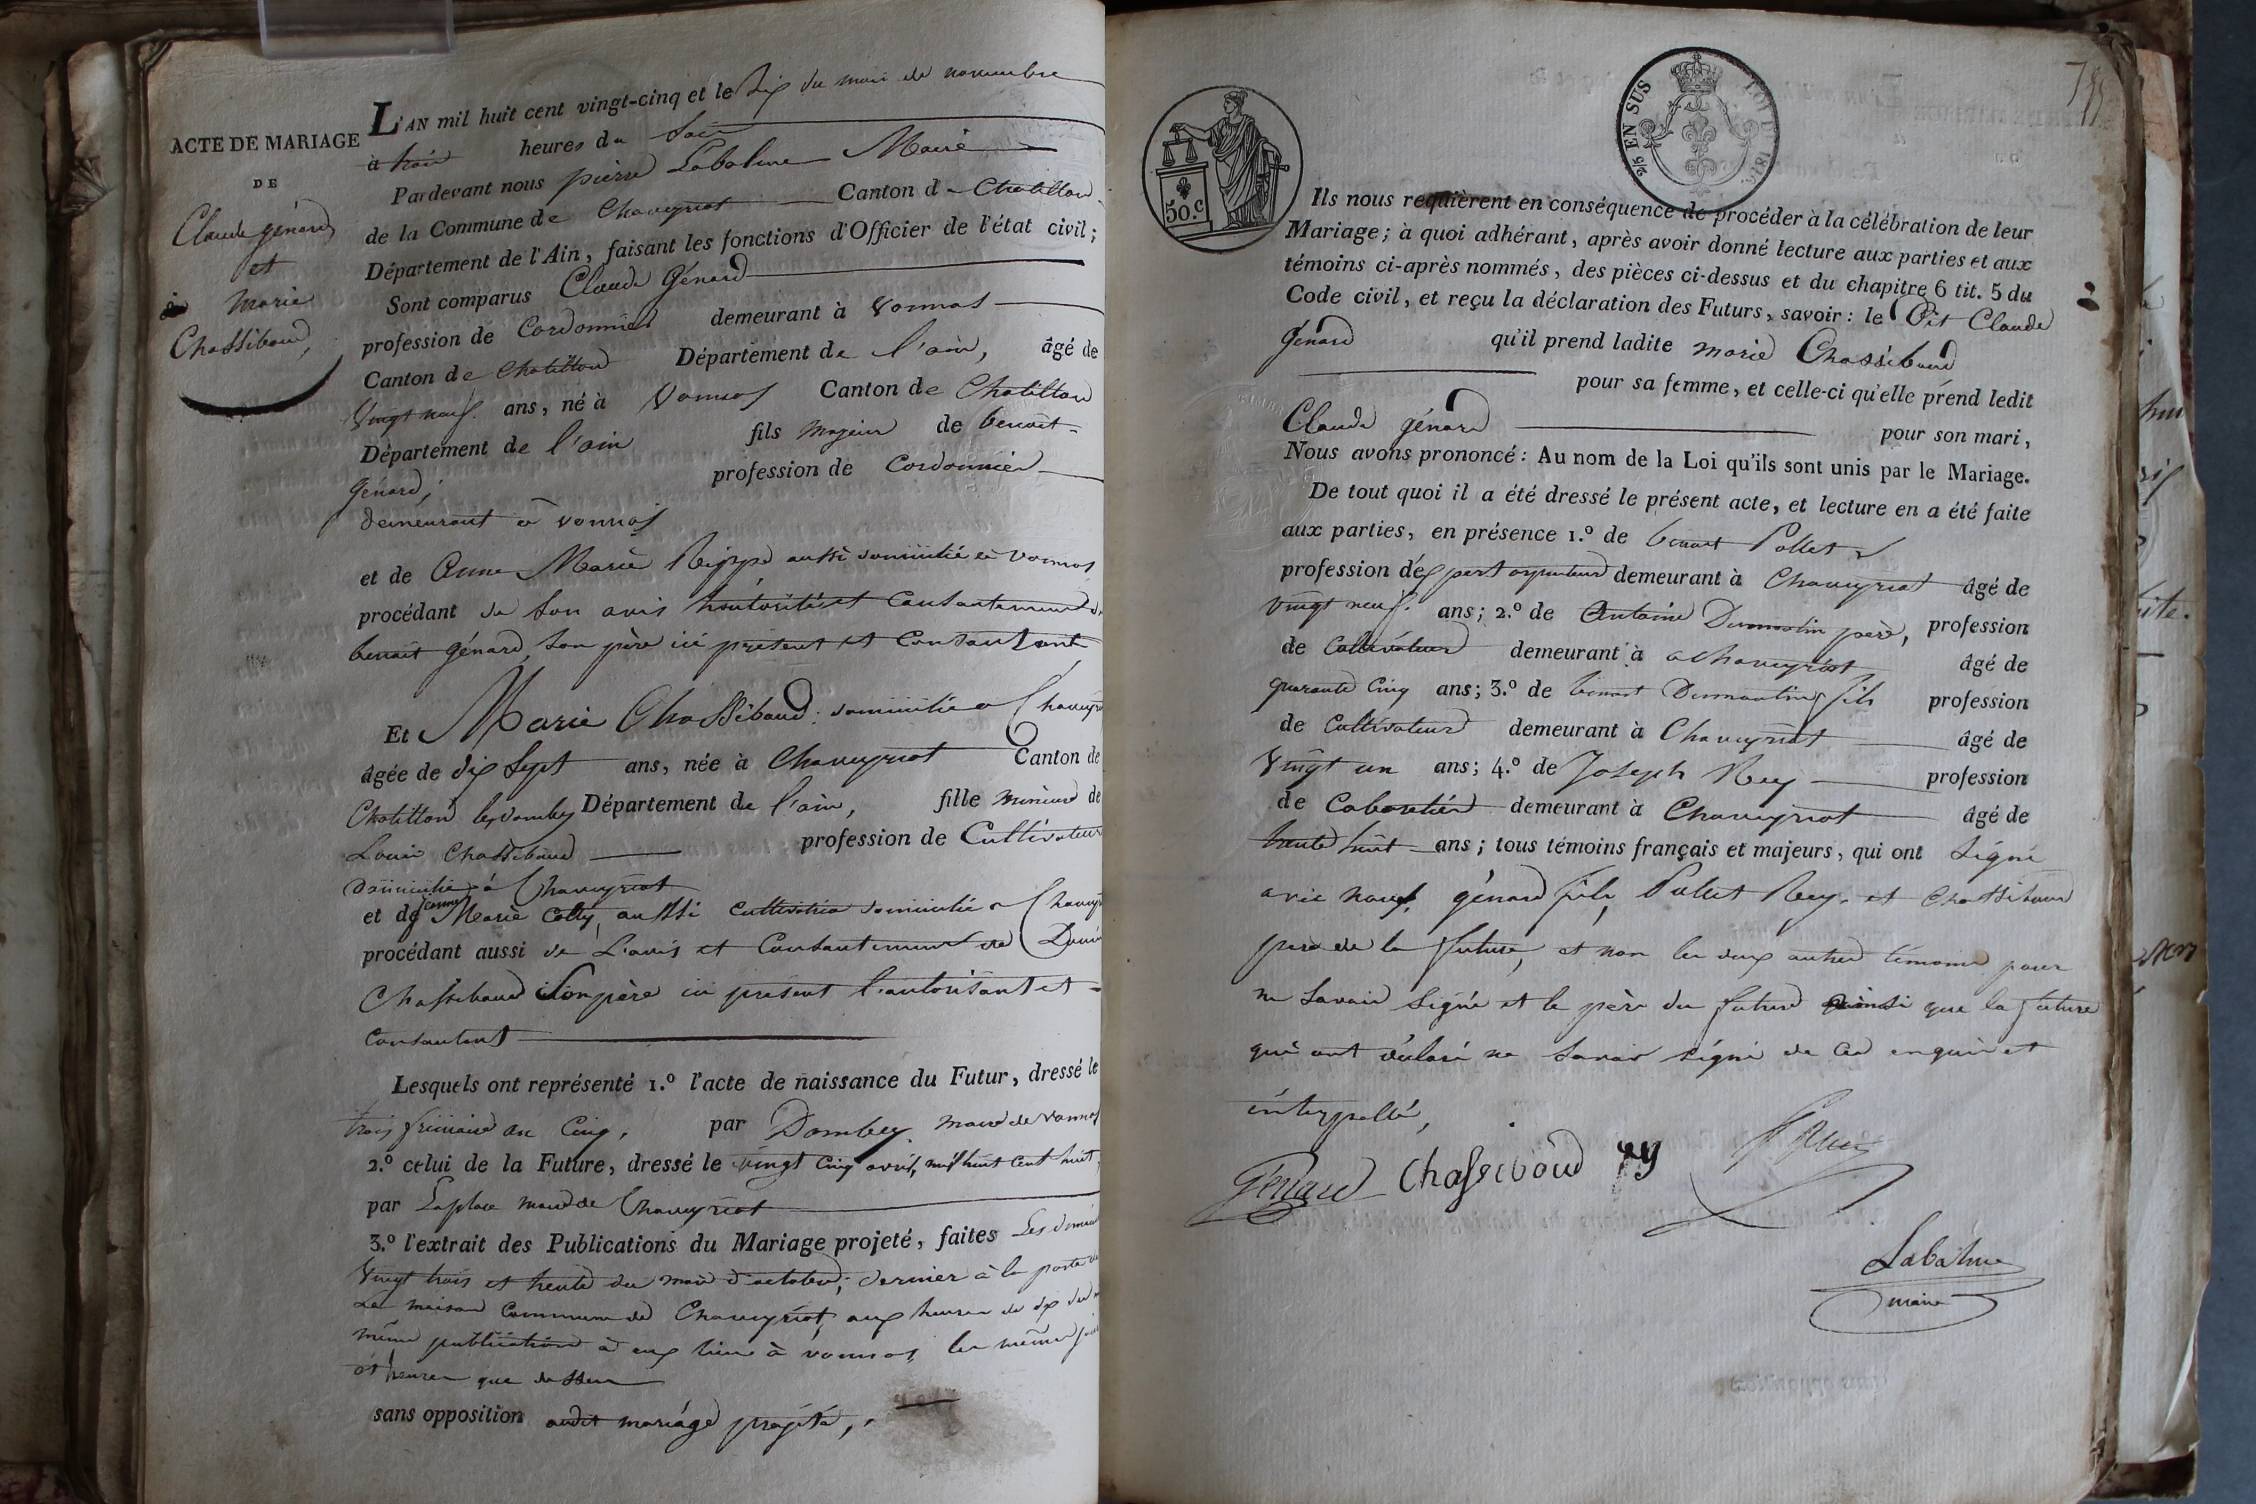 ACTE DE MARIAGE
DE
Claude génard
et
de Marie
Chassiboud,
L'AN mil huit cent vingt-cinq et le dix du mois de novembre
à trois heures du soir
Pardevant nous pierre Labalme Maire
de la Commune de Chaveyriat Canton de Chatillon
Département de l'Ain, faisant les fonctions d'Officier de l'état civil;
Sont comparus Claude Génard
profession de Cordonnier demeurant à Vonnas
Canton de Chatillon Département de l'ain, âgé de
Vingt neuf ans, né à Vonnas Canton de Chatillon
Département de l'ain fils majeur de benoit
Génard, profession de Cordonnier
demeurant à vonnas
et de Anne Marie Rippe aussi domiciliée à vonnas
procédant de son avis et Consantement de
benoit génard, son père ici présent et Consantant
Et Marie Chassiboud domiciliée a Chaveyriat
âgée de dix sept ans, née à Chaveyriat Canton de
Chatillon les dombes Département de l'ain, fille mineure de
Louis Chassiboud profession de Cultivateur
domicilié à Chaveyriat
et de jeanne Marie Colly, aussi cultivatrice domiciliée a Chaveyriat
procédant aussi de L'avis et Consantement de Louis
Chassiboud son père ici présent l'autorisant et
Consantant
Lesquels ont représenté 1.º l'acte de naissance du Futur, dressé le
trois frimaire an Cinq, par Dombey maire de vonnas
2.º celui de la Future, dressé le vingt Cinq avril, mil huit cent huit,
par Laplace maire de Chaveyriat
3.º l'extrait des Publications du Mariage projeté, faites Les dimanches
Vingt trois et trente du mois d'octobre, dernier à la porte de
La maison Commune de Chaveyriat, aux heures de dix du
même publication a eux lieu à vonnas, les mêmes jours
et heures que dessus
sans opposition audit mariage projeté,
50.c
2/5 EN SUS
LOI DE 1816.
Ils nous requièrent en conséquence de procéder à la célébration de leur
Mariage; à quoi adhérant, après avoir donné lecture aux parties et aux
témoins ci-après nommés, des pièces ci-dessus et du chapitre 6 tit. 5 du
Code civil, et reçu la déclaration des Futurs, savoir: le Dit Claude
génard qu'il prend ladite marie Chassiboud
pour sa femme, et celle-ci qu'elle prend ledit
Claude génard pour son mari,
Nous avons prononcé: Au nom de la Loi qu'ils sont unis par le Mariage.
De tout quoi il a été dressé le présent acte, et lecture en a été faite
aux parties, en présence 1.º de benoit Pollet
profession d'expert arpenteur demeurant à Chaveyriat âgé de
vingt neuf ans; 2.º de Antoine Dumoulin père, profession
de Cultivateur demeurant à a Chaveyriat âgé de
quarante Cinq ans; 3.º de benoit Dumoulin fils profession
de Cultivateur demeurant à Chaveyriat âgé de
Vingt un ans; 4.º de Joseph Rey profession
de Cabaretier demeurant à Chaveyriat âgé de
trente huit ans; tous témoins français et majeurs, qui ont signé
avec nous, génard fils, Pollet Rey, et Chassiboud
père de la future, et non les deux autres témoins pour
ne savoir signé et le père du futur ainsi que la future
qui ont déclaré ne savoir signé de ce enquis et
interpellé,
Génard Chassiboud Rey
Labalme
maire